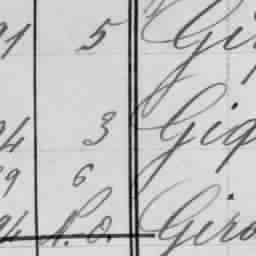 91 5 Gi
94 3 Gig
89 6
94 N. O. Giro